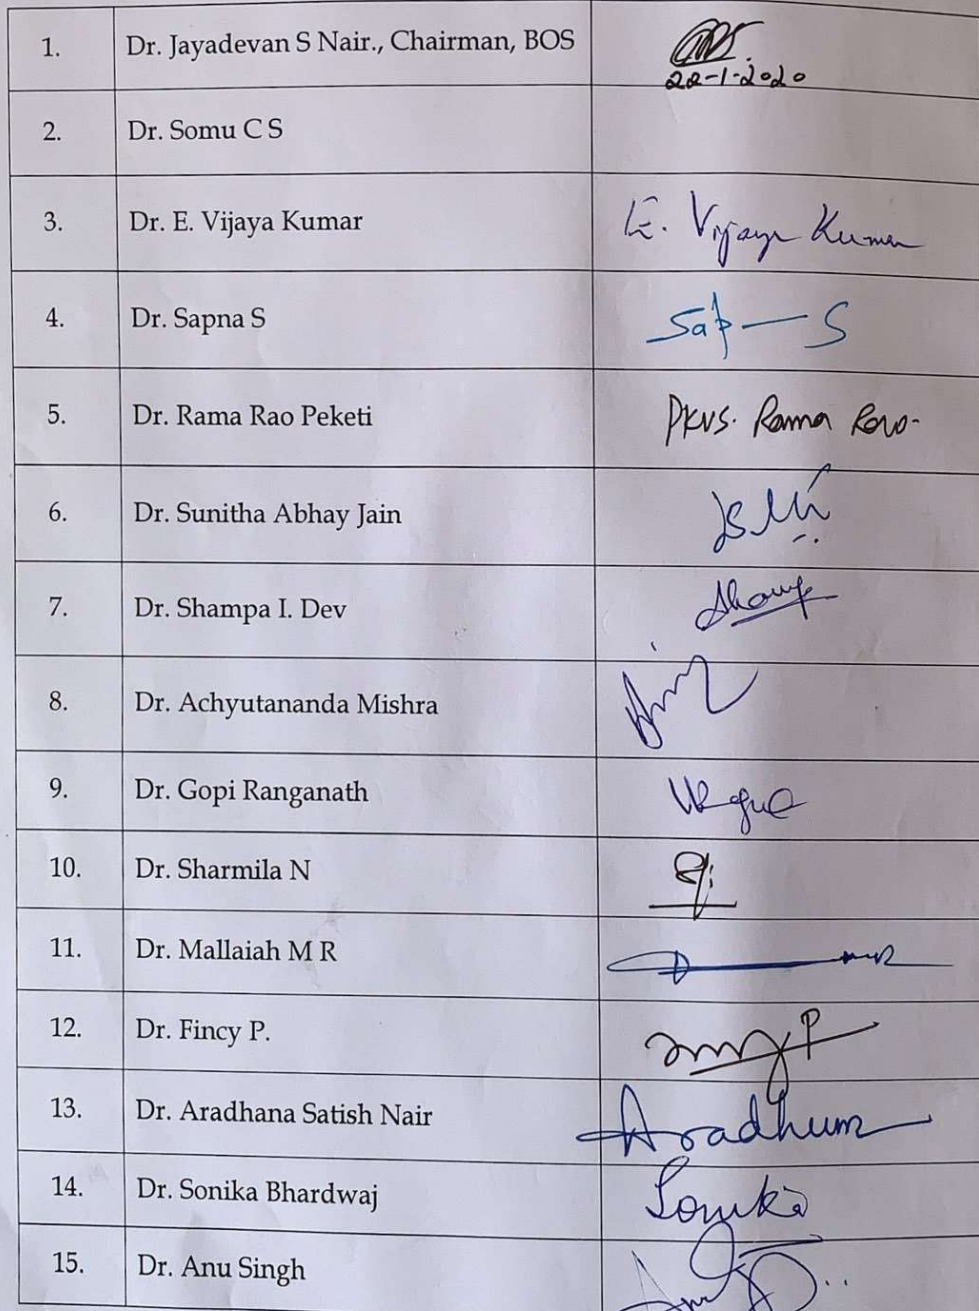 1. Dr. Jayadevan S Nair., Chairman, BOS
22-1-2020
2. Dr. Somu C S
3. Dr. E. Vijaya Kumar E. Vijaya Kumar
4. Dr. Sapna S Sap S
5. Dr. Rama Rao Peketi PKVS. Rama Rao.
6. Dr. Sunitha Abhay Jain
7. Dr. Shampa I. Dev
8. Dr. Achyutananda Mishra
9. Dr. Gopi Ranganath
10. Dr. Sharmila N
11. Dr. Mallaiah M R
12. Dr. Fincy P.
13. Dr. Aradhana Satish Nair
14. Dr. Sonika Bhardwaj Sonika
15. Dr. Anu Singh